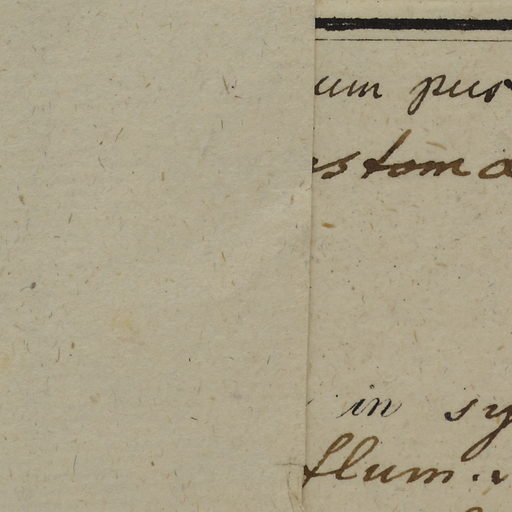 um pur
stoma
in sy
flum.